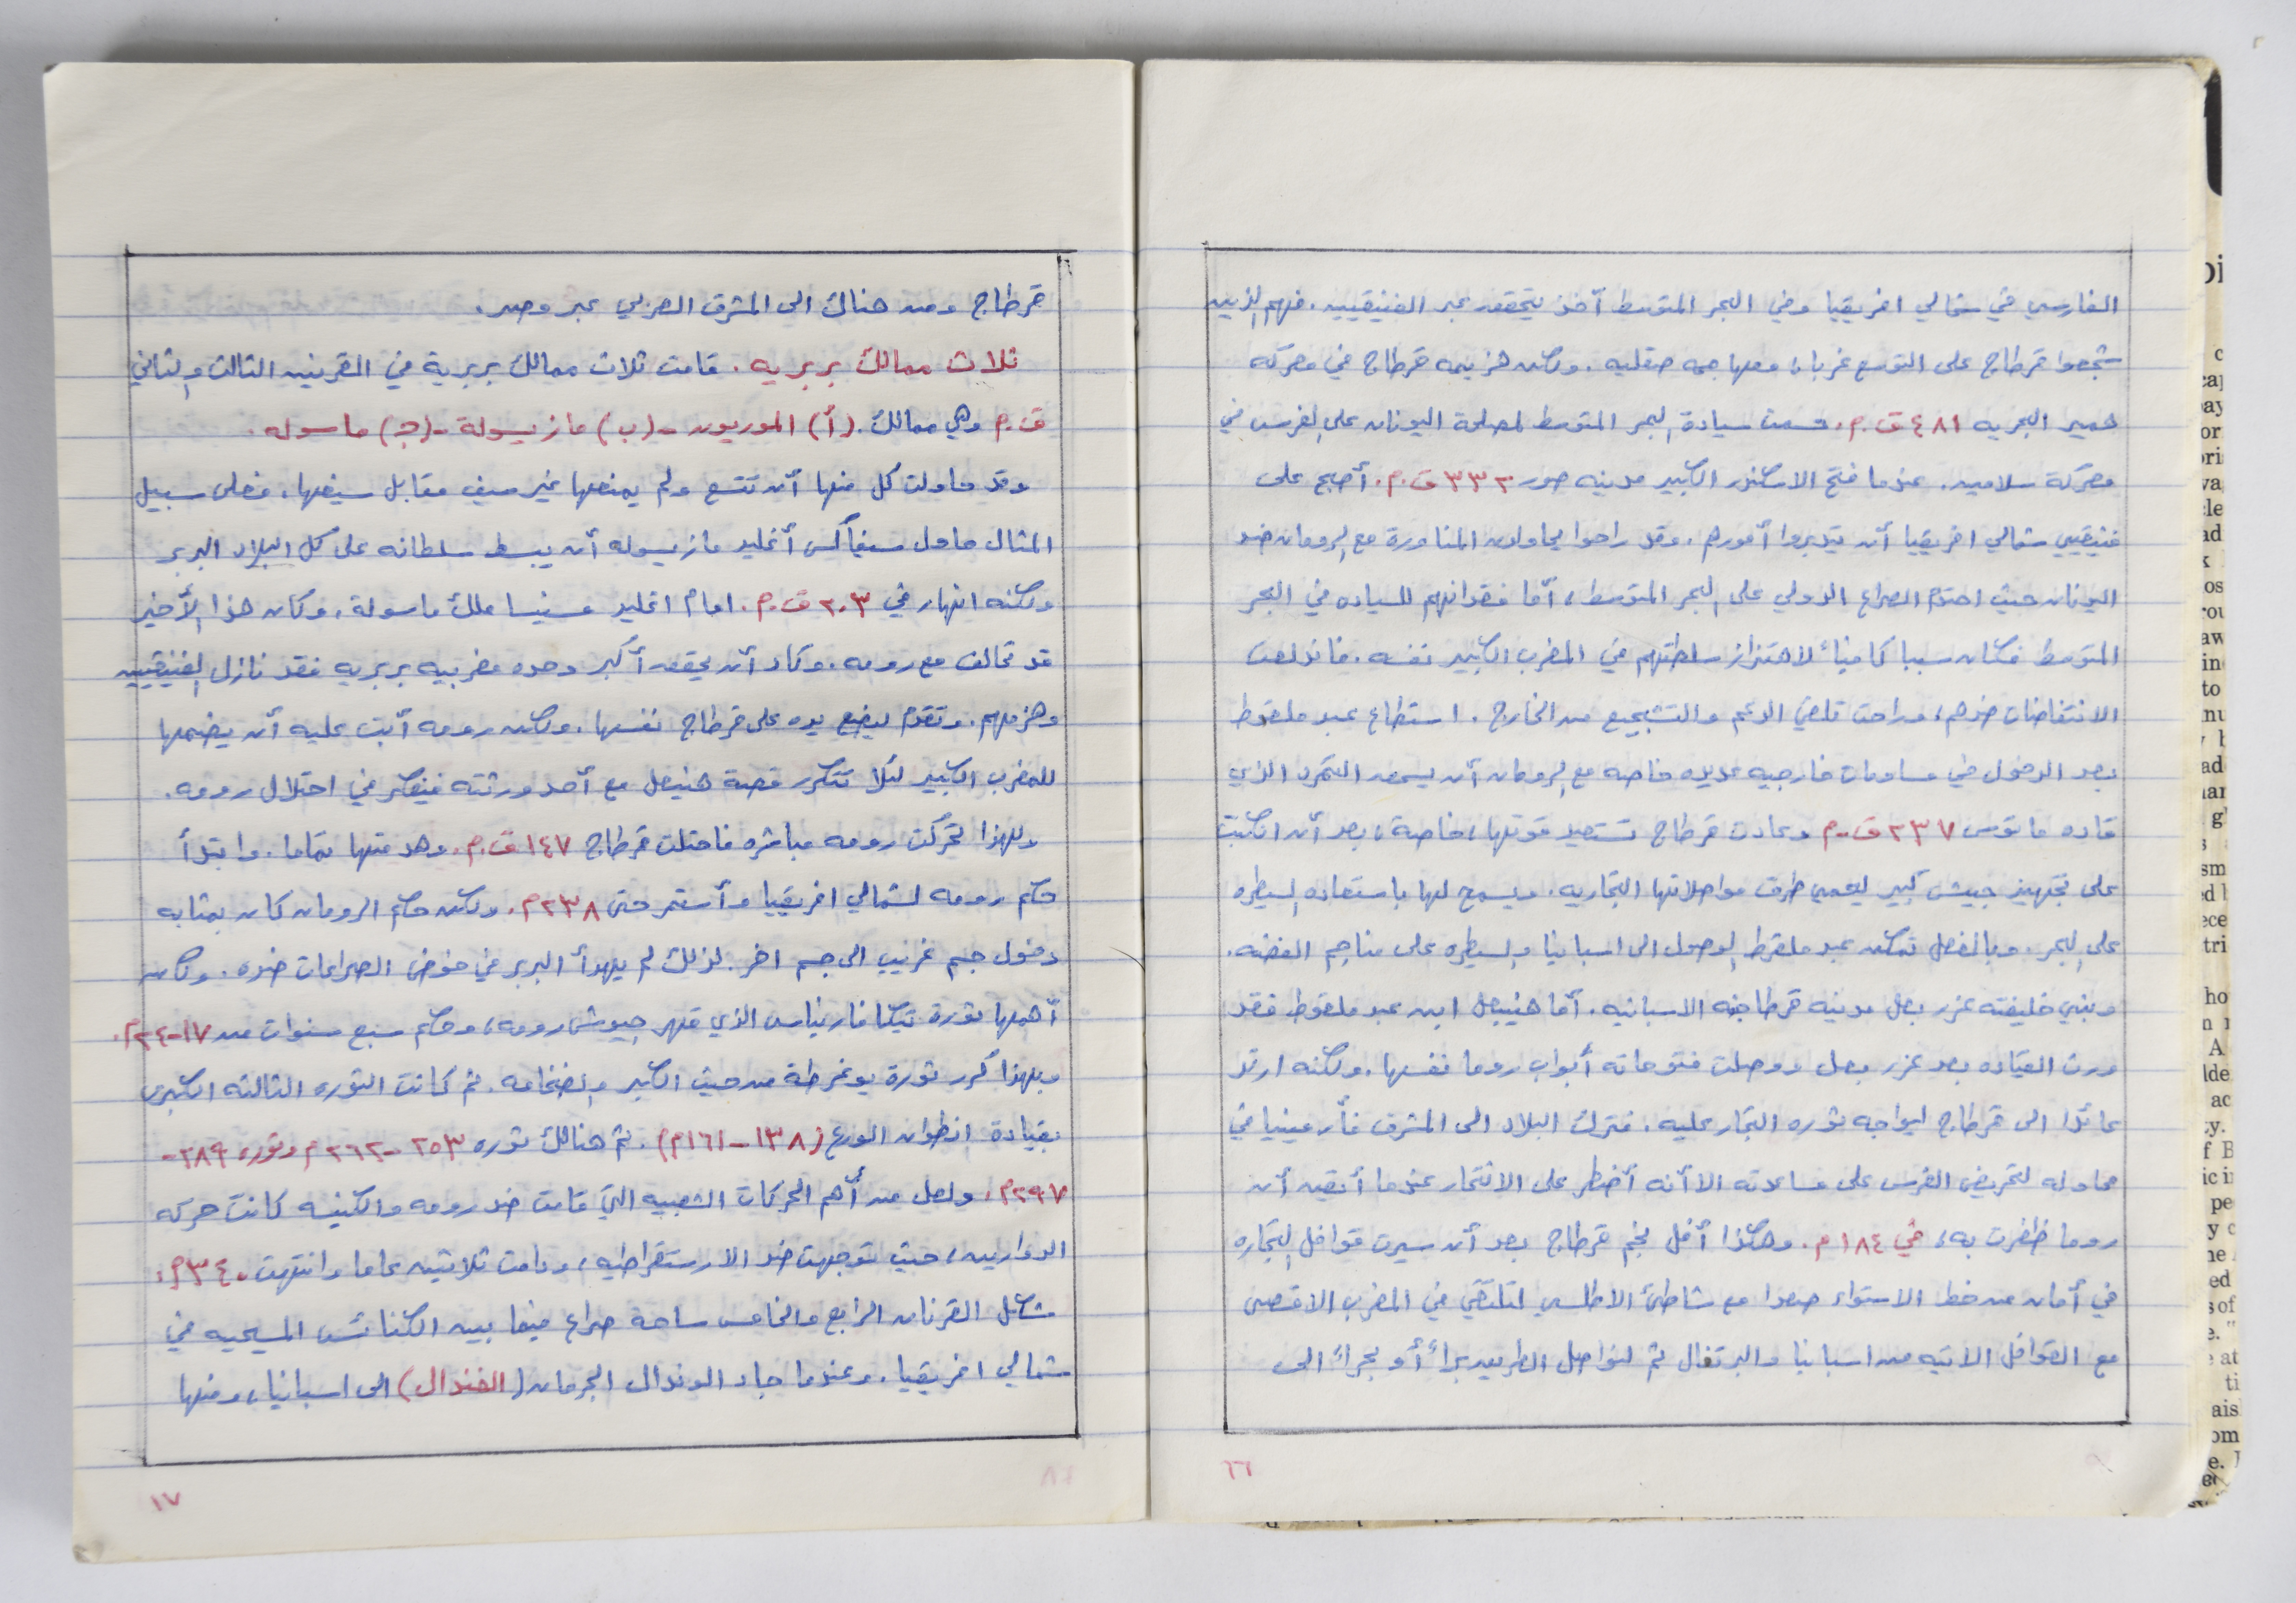 الفارسي في شمالي افريقيا وفي البحر المتوسط آخذ يتحقق عبر الفنيقيين. فهم الذين
شجعوا قرطاج على التوسع غربا، ومهاجمه صقليه. ولكن هزيمه قرطاج في معركه
هميرا البحريه ٤٨١ ق.م. حسمت سيادة البحر المتوسط لمصلحة اليونان على الفرس في
معركة سلامين. عندما فتح الاسكندر الكبير مدينه صور ٣٣٢ ق.م. أصبح على
فنيقيي شمالي افريقيا أن يتدبروا أمورهم. وقد راحوا يحاولون المناورة مع الرومان ضد
اليونان حيث احتدم الصراع الدولي على البحر المتوسط، أما فقدانهم للسياده في البحر
المتوسط فكان سببا كافياً لاهتزاز سلطتهم في المغرب الكبير نفسه. فاندلعت
الانتفاضات ضدهم، وراحت تلقى الدعم والتشجيع من الخارج. استطاع عبد ملقوط
بعد الدخول في مساومات خارجيه عديده خاصه مع الرومان أن يسحق التمرد الذي
قاده ماتوس ٢٣٧ ق.م وعادت قرطاج تستعيد قوتها، خاصة، بعد أن انكبت
على تجهيز جيش كبير ليحمي طرق مواصلاتها التجاريه. ويسمح لها باستعاده السيطره
على البحر. وبالفعل تمكن عبد ملقرط الوصول الى اسبانيا والسيطره على مناجم الفضه.
وبني خليفته عزر بعل مدينه قرطاجنه الاسبانيه. أما هنيبعل ابن عبد ملقوط فقد
ورث القياده بعد عزر بعل ووصلت فتوحاته أبواب روما نفسها. ولكنه ارتد
عائدا الى قرطاج ليواجه ثوره التجار عليه. فترك البلاد الى المشرق فأرمينيا في
محاوله لتحريض الفرس على مساعدته الا أنه أضطر على الانتحار عندما أيقن أن
روما ظفرت به، في ١٨٤ م. وهكذا أفل نجم قرطاج بعد أن سيرت قوافل التجاره
في أمان من خط الاستواء صعدا مع شاطئ الاطلسي لتلتقي في المغرب الاقصى
مع القوافل الاتيه من اسبانيا والبرتغال ثم لتواصل الطريق براً أو بحراً الى
٦٦
قرطاج ومن هناك الى المشرق العربي عبر مصر.
ثلاث ممالك بربريه. قامت ثلاث ممالك بربرية في القرنين الثالث والثاني
ق.م وهي ممالك. (أ) الموريون - (ب) مازيسولة - (ج) ماسوله.
وقد حاولت كل منها أن تتسع ولم يمنعها غير سيف مقابل سيفها. فعلى سبيل
المثال حاول سيفاكس أغليد مازيسوله أن يبسط سلطانه على كل البلاد البربر
ولكنه انهار في ٢٠٣ ق.م. امام اغليد مسنيسا ملك ماسولة. وكان هذا الأخير
قد تحالف مع رومه. وكاد أن يحقق أكبر وحده مغربيه بربريه فقد نازل الفنيقيين
وهزمهم. وتقدم ليضع يده على قرطاج نفسها. ولكن رومه أبت عليه أن يضمها
للمغرب الكبير لئلا تتكرر قصة هنيبعل مع أحد ورثته فيفكر في احتلال رومه.
ولهذا تحركت رومه مباشره فاحتلت قرطاج ١٤٧ ق.م. وهدمتها تماما. وابتدأ
حكم رومه لشمالي افريقيا وأستمر حتى ٢٣٨م. ولكن حكم الرومان كان بمثابه
دخول جسم غريب الى جسم اخر. لذلك لم يهدأ البربر في خوض الصراعات ضده. وكان
أهمها ثورة تيكنافاريناس الذي قهر جيوش رومه، وحكم سبع سنوات من ١٧-٢٤م.
وبهذا كرر ثورة يوغرطة من حيث الكبر والضخامه. ثم كانت الثوره الثالثه الكبرى
بقيادة انطوان الورع (١٣٨-١٦١م). ثم هنالك ثوره ٢٥٣-٢٦٢م وثوره ٢٨٩-
٢٩٧م. ولعل من أهم الحركات الشعبيه التي قامت ضد رومه والكنيسه كانت حركه
الدوارين، حيث توجهت ضد الارستقراطيه، ودامت ثلاثين عاما وانتهت ٣٤٠م،
شكل القرنان الرابع والخامس ساحة صراع فيما بين الكنائس المسيحيه في
شمالي افريقيا. وعندما جاء الوندال الجرمان (الفندال) الى اسبانيا، ومنها
١٧